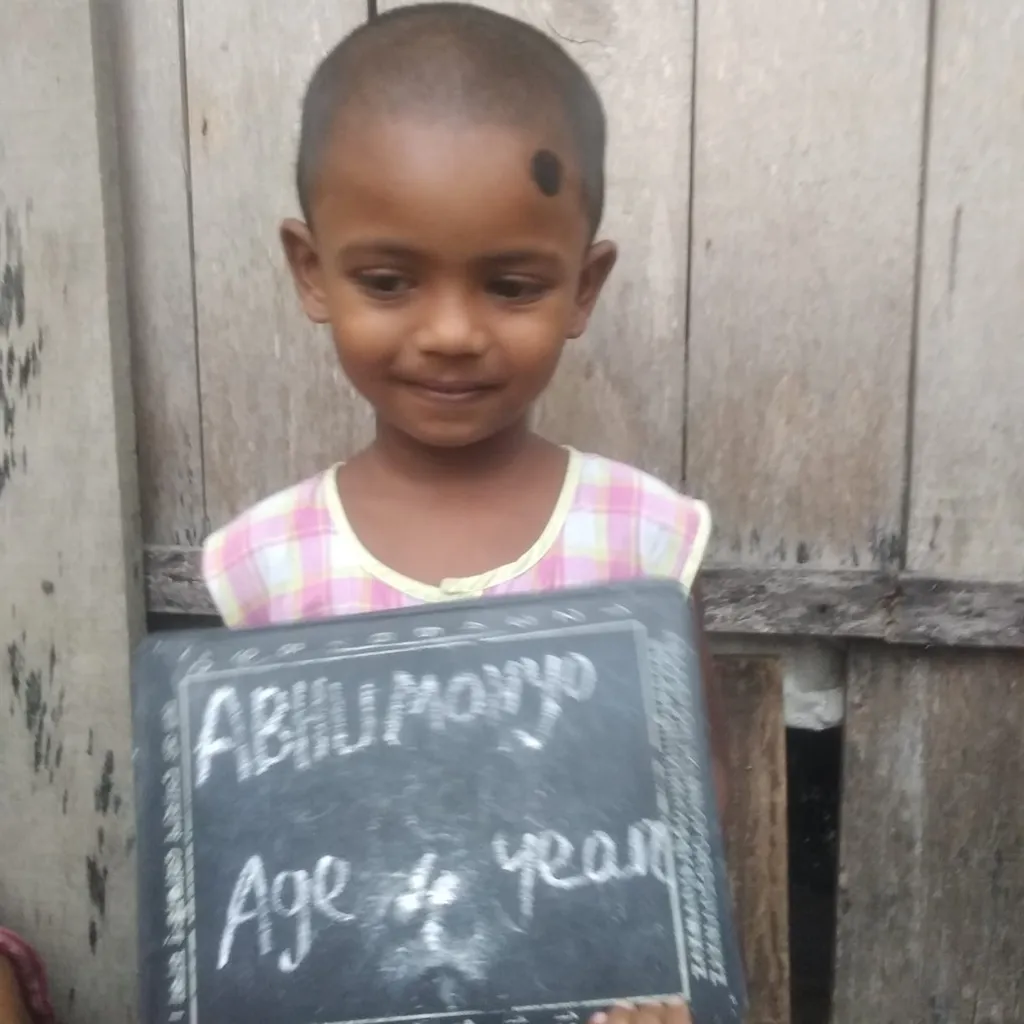 ABHUMONYO
Age 4 year